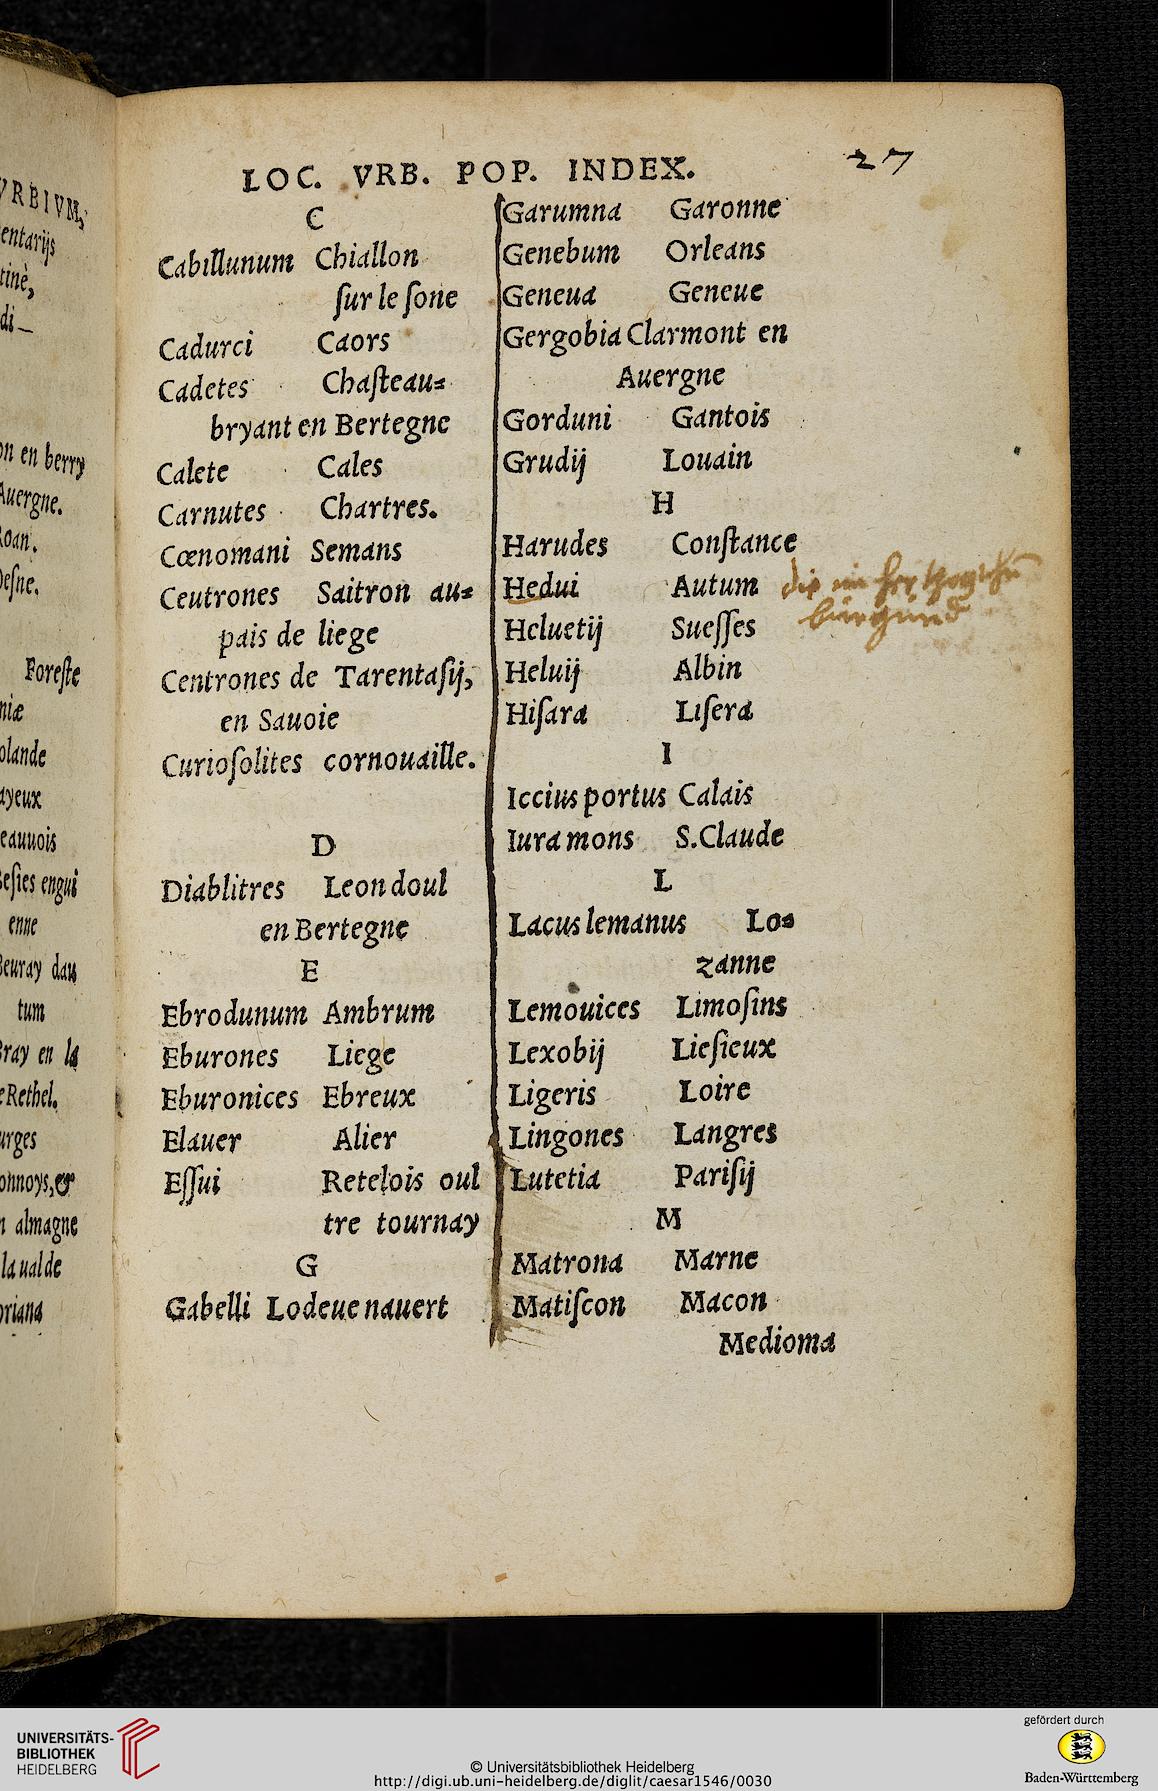 VRBIVM,
entarijs
tinè,
di_
on en berry
Auergne.
Roan.
Desne.
Foreste
niæ
olande
ayeux
eauuois
esies engui
enne
Beuray dau
tum
Bray en la
Rethel.
urges
onnoys,&
n almagne
la ual de
oriana
LOC. VRB. POP. INDEX.
27
C
Cabillunum Chiallon
ſur le ſone
Cadurci Caors
Cadetes Chaſteau⸗
bryant en Bertegne
Calete Cales
Carnutes Chartres.
Cœnomani Semans
Ceutrones Saitron au⸗
pais de liege
Centrones de Tarentaſij,
en Sauoie
Curioſolites cornouaille.
D
Diablitres Leon doul
en Bertegne
E
Ebrodunum Ambrum
Eburones Liege
Eburonices Ebreux
Elauer Alier
Eſſui Retelois oul
tre tournay
G
Gabelli Lodeue nauert
Garumna Garonne
Genebum Orleans
Geneua Geneue
Gergobia Clarmont en
Auergne
Gorduni Gantois
Grudij Louain
H
Harudes Conſtance
Hedui Autum die im
burgund
Heluetij Sueſſes
Heluij Albin
Hiſara Liſera
I
Iccius portus Calais
Iura mons S.Claude
L
Lacus lemanus Lo⸗
zanne
Lemouices Limoſins
Lexobij Lieſieux
Ligeris Loire
Lingones Langres
Lutetia Pariſij
M
Matrona Marne
Matiſcon Macon
Medioma
UNIVERSITÄTS-
BIBLIOTHEK
HEIDELBERG
© Universitätsbibliothek Heidelberg
http://digi.ub.uni-heidelberg.de/diglit/caesar1546/0030
gefördert durch
Baden-Württemberg